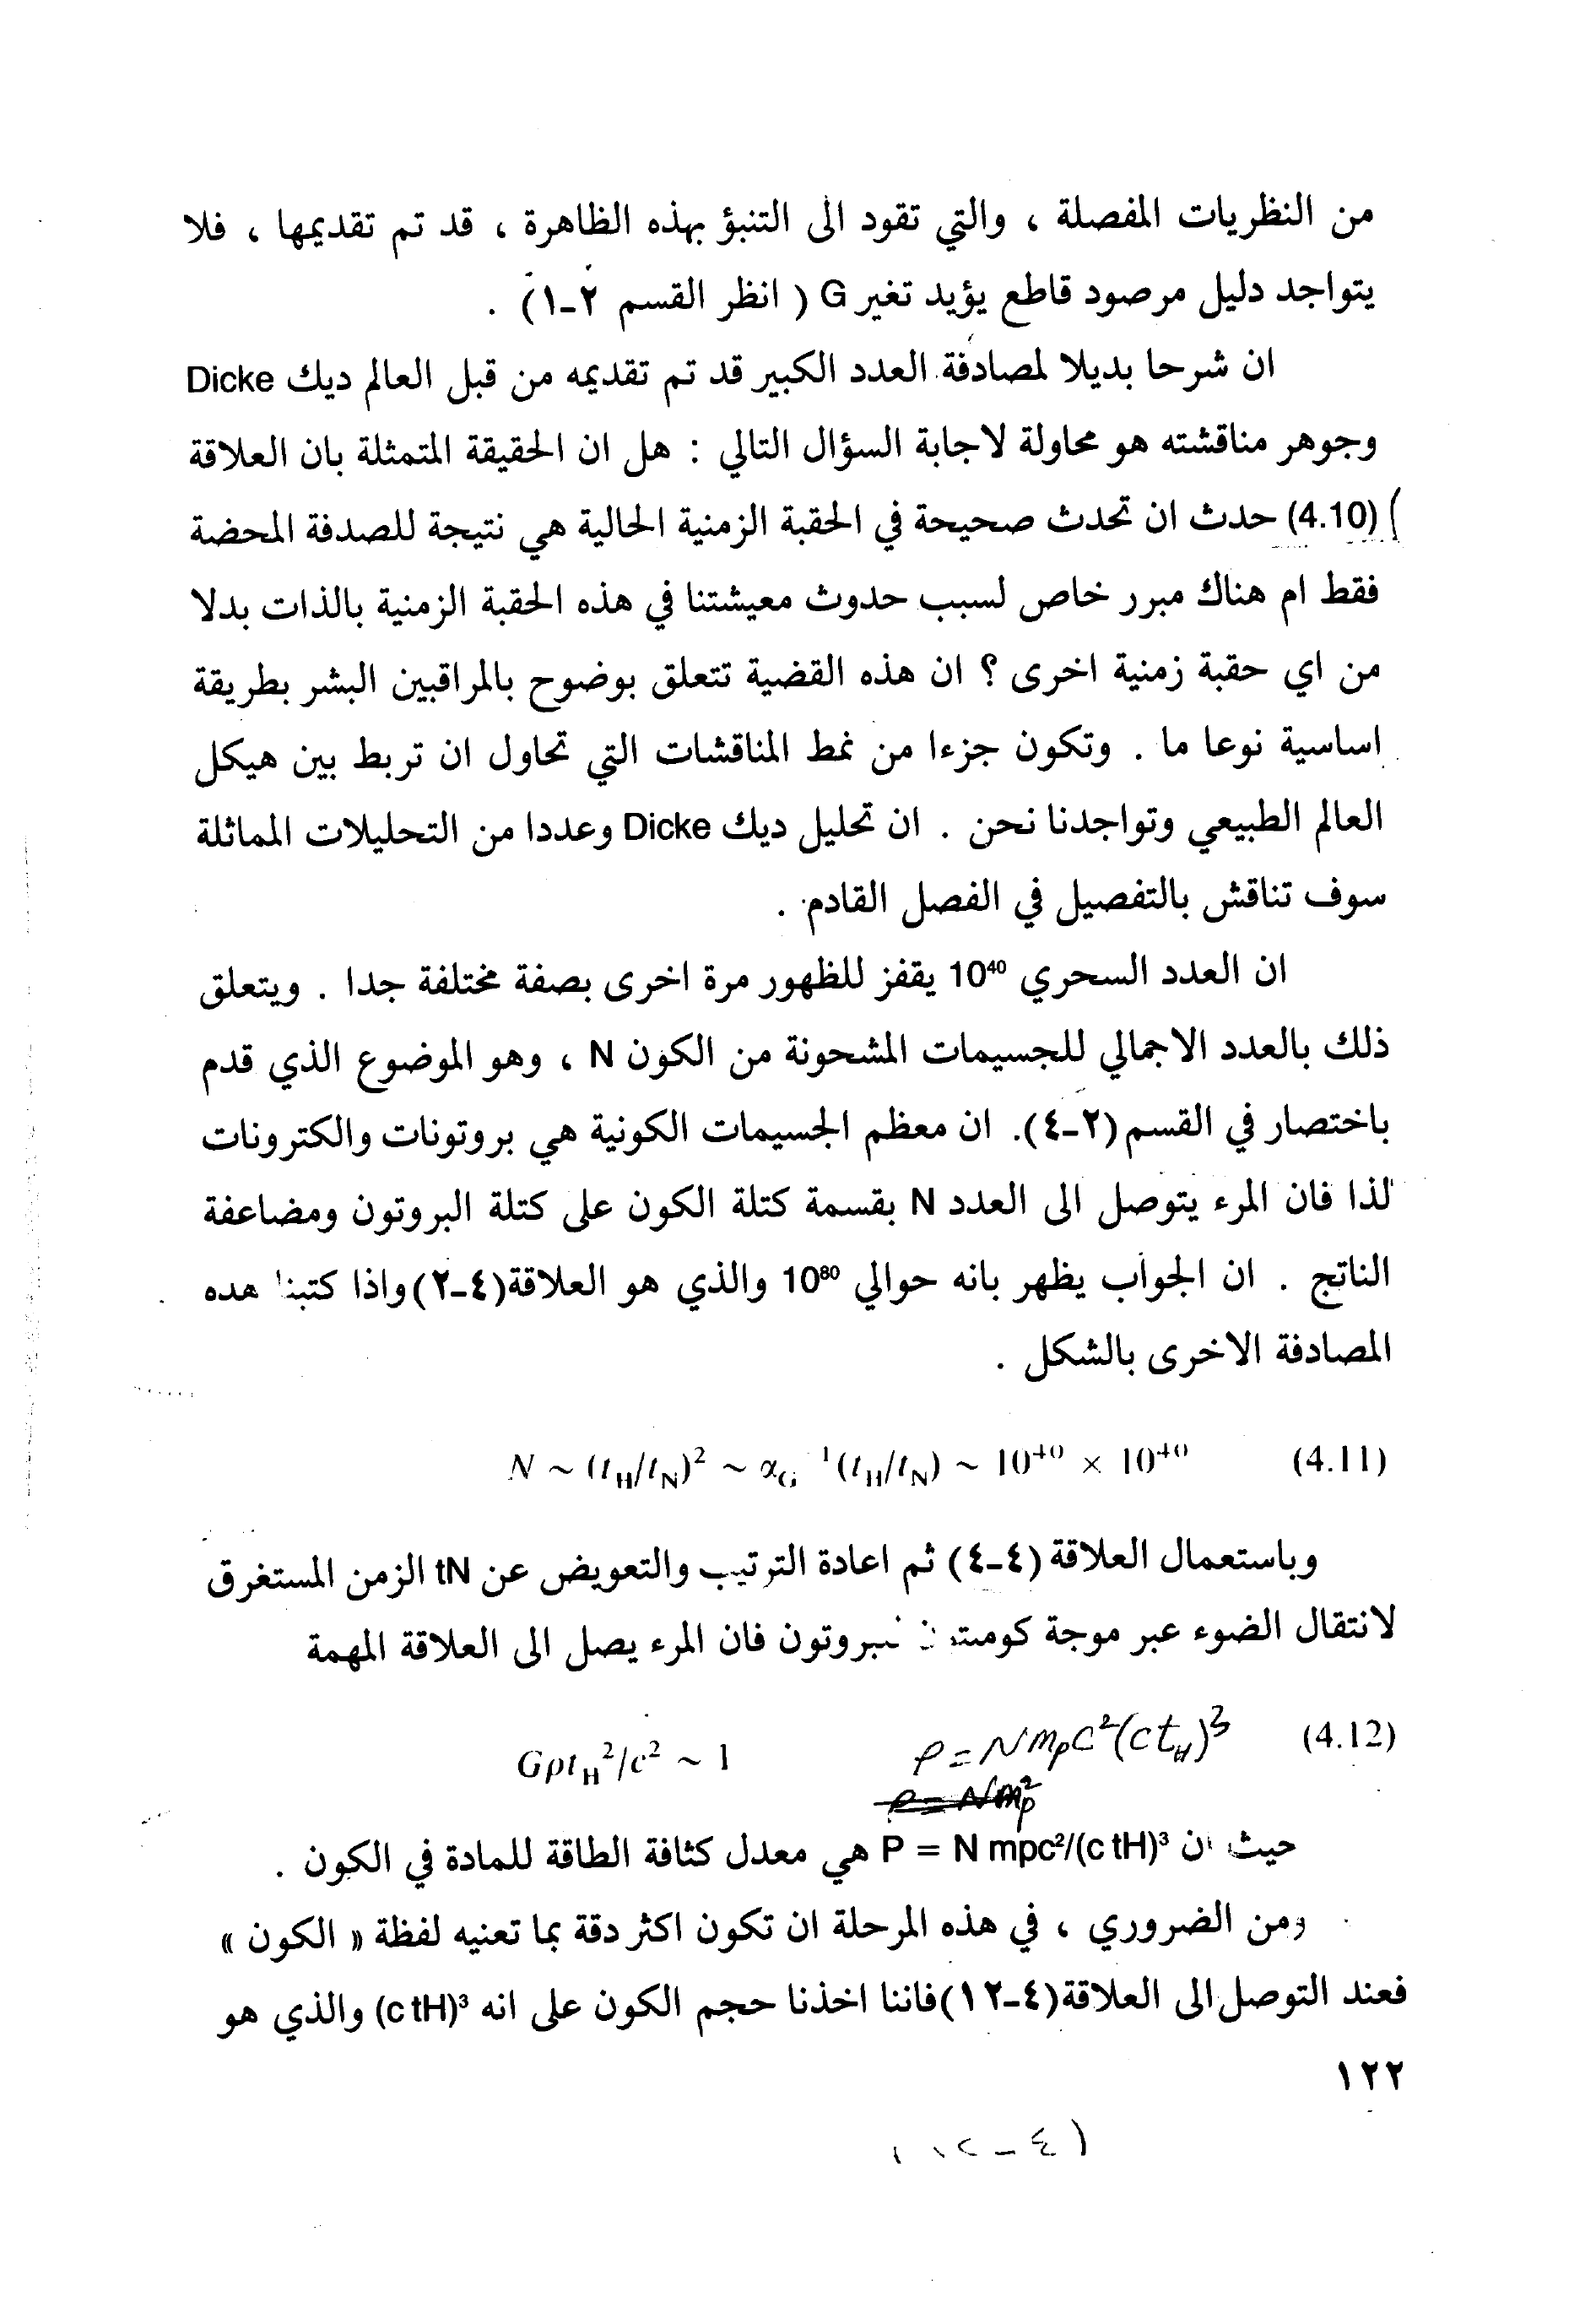 من النظريات المفصلة ، والتي تقود الى التنبؤ بهذه الظاهرة ، قد تم تقديمها ، فلا
يتواجد دليل مرصود قاطع يؤيد تغير G ( انظر القسم ٢-١) .
ان شرحا بديلا لمصادفة العدد الكبير قد تم تقديمه من قبل العالم ديك Dicke
وجوهر مناقشته هو محاولة لاجابة السؤال التالي : هل ان الحقيقة المتمثلة بان العلاقة
(4.10) حدث ان تحدث صحيحة في الحقبة الزمنية الحالية هي نتيجة للصدفة المحضة
فقط ام هناك مبرر خاص لسبب حدوث معيشتنا في هذه الحقبة الزمنية بالذات بدلا
من اي حقبة زمنية اخرى ؟ ان هذه القضية تتعلق بوضوح بالمراقبين البشر بطريقة
اساسية نوعا ما . وتكون جزءا من نمط المناقشات التي تحاول ان تربط بين هيكل
العالم الطبيعي وتواجدنا نحن . ان تحليل ديك Dicke وعددا من التحليلات المماثلة
سوف تناقش بالتفصيل في الفصل القادم .
ان العدد السحري 10⁴⁰ يقفز للظهور مرة اخرى بصفة مختلفة جدا . ويتعلق
ذلك بالعدد الاجمالي للجسيمات المشحونة من الكون N ، وهو الموضوع الذي قدم
باختصار في القسم (٢-٤). ان معظم الجسيمات الكونية هي بروتونات والكترونات
لذا فان المرء يتوصل الى العدد N بقسمة كتلة الكون على كتلة البروتون ومضاعفة
الناتج . ان الجواب يظهر بانه حوالي 10⁸⁰ والذي هو العلاقة (٤-٢) واذا كتبنا هده
المصادفة الاخرى بالشكل .
N ~ (t_H/t_N)² ~ α_G ¹(t_H/t_N) ~ 10⁴⁰ × 10⁴⁰ (4.11)
وباستعمال العلاقة (٤-٤) ثم اعادة الترتيب والتعويض عن tN الزمن المستغرق
لانتقال الضوء عبر موجة فان المرء يصل الى العلاقة المهمة
Gρt_H²/c² ~ 1 ρ = N m_p c²(ct_H)³ (4.12)
ρ = N m_p²
حيث ان P = N mpc²/(c tH)³ هي معدل كثافة الطاقة للمادة في الكون .
ومن الضروري ، في هذه المرحلة ان تكون اكثر دقة بما تعنيه لفظة « الكون »
فعند التوصل الى العلاقة (٤-١٢) فاننا اخذنا حجم الكون على انه (c tH)³ والذي هو
١٢٢